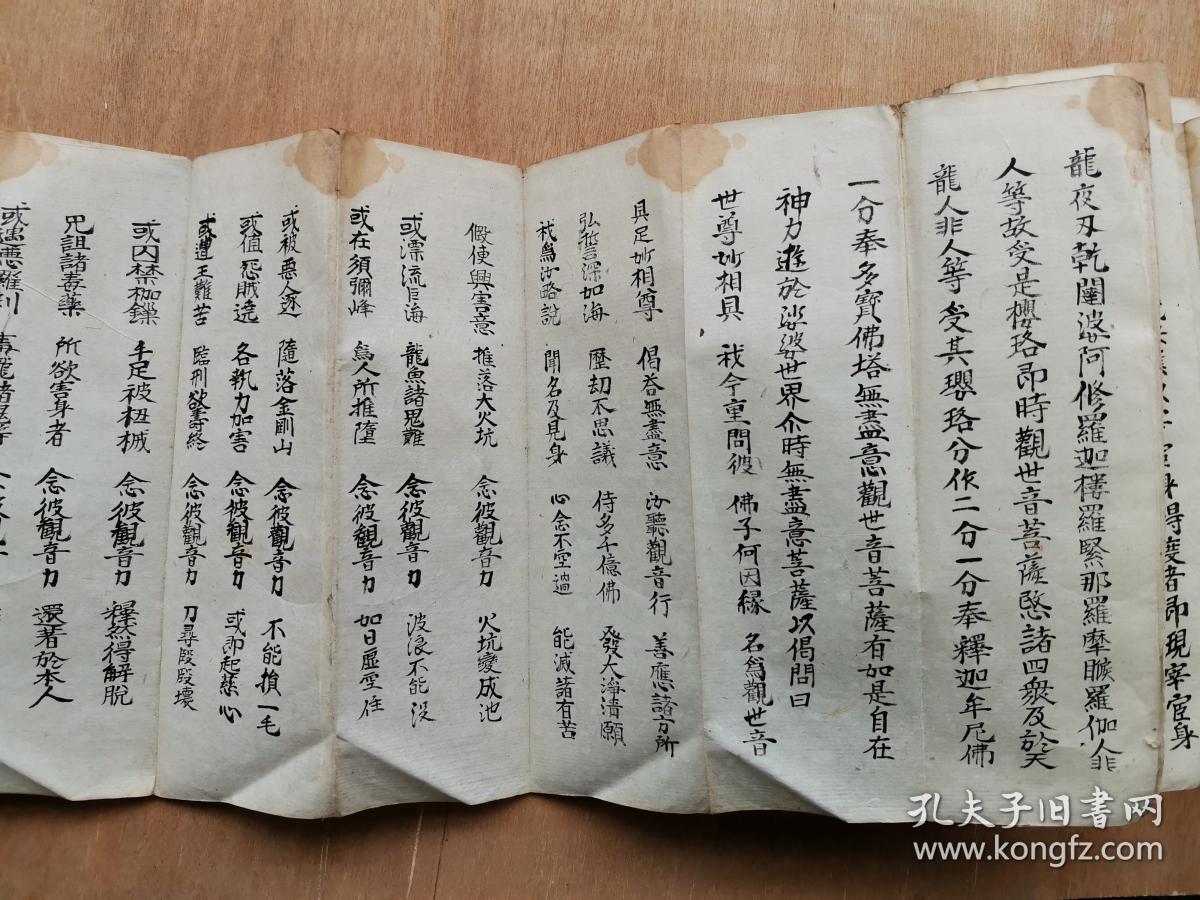 得度者即現宰官身
龍夜叉乾闥婆阿修羅迦樓羅緊那羅摩睺羅伽人非
人等故受是櫻珞即時觀世音菩薩愍諸四衆及於天
龍人非人等 受其瓔珞分作二分一分奉釋迦牟尼佛
一分奉多寶佛塔無盡意觀世音菩薩有如是自在
神力遊於娑婆世界尒時無盡意菩薩以偈問曰
世尊妙相具 我今重問彼 佛子何因緣 名為觀世音
具足妙相尊 偈荅無盡意 汝聽觀音行 善應諸方所
弘誓深如海 歷刧不思議 侍多千億佛 發大淨清願
我為汝略說 聞名及見身 心念不空過 能滅諸有苦
假使興害意 推落大火坑 念彼觀音力 火坑變成池
或漂流巨海 龍魚諸鬼難 念彼觀音力 波浪不能没
或在須彌峰 為人所推墮 念彼觀音力 如日虛空住
或被惡人逐 隨落金剛山 念彼觀音力 不能損一毛
或值怨賊遶 各執力加害 念彼觀音力 或即起慈心
或遭王難苦 臨刑欲壽終 念彼觀音力 刀尋段段壞
或囚禁枷鏁 手足被杻械 念彼觀音力 釋然得解脫
咒詛諸毒藥 所欲害身者 念彼觀音力 還著於本人
或遇惡羅刹 毒龍諸鬼等
孔夫子旧书网
www.kongfz.com